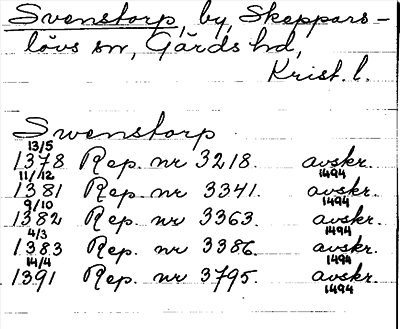 Svenstorp, by, Skeppars-
lövs sn, Gärds hd,
Krist. l.
Swenstorp
13/5
1378 Rep. nr 3218. avskr.
11/12 1494
1381 Rep. nr 3341. avskr.
9/10 1494
1382 Rep. nr 3363. avskr.
4/3 1494
1383 Rep. nr 3386. avskr.
14/4 1494
1391 Rep. nr 3795. avskr.
1494